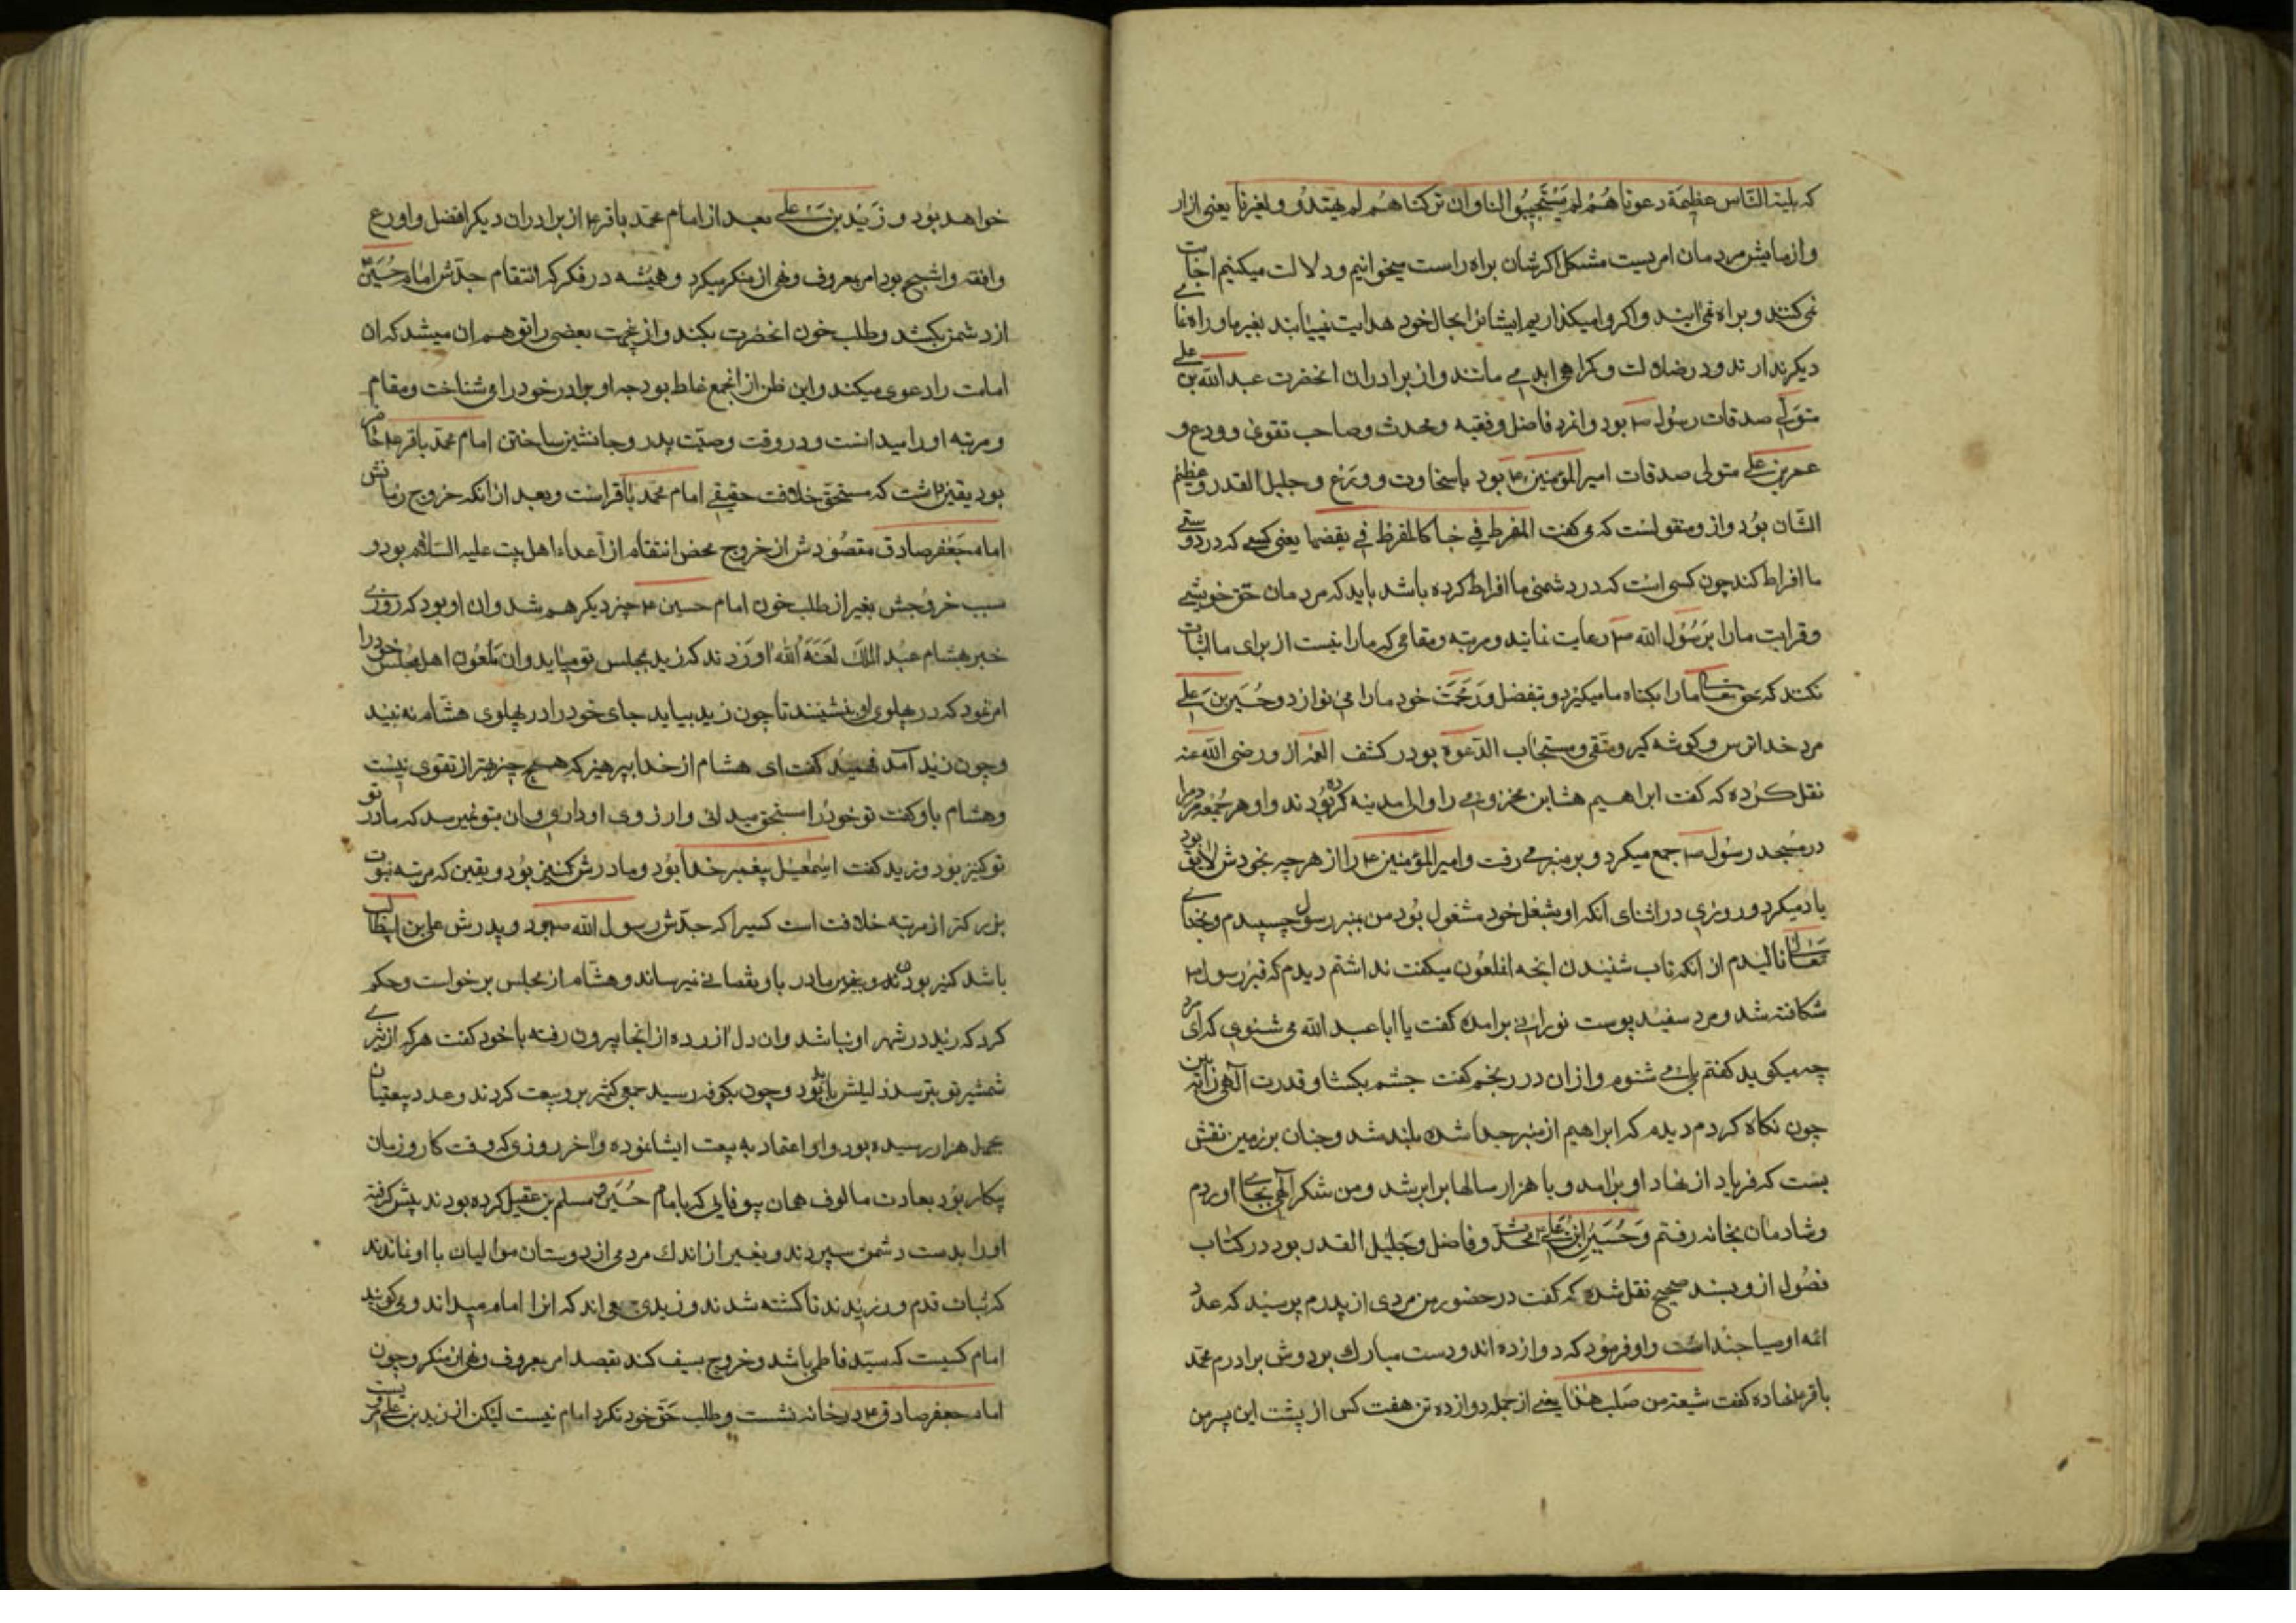 که بلیة النّاس عظیمة دعوناهُمْ لم یَسْتَجیبُوا لنا وان ترکناهُم لم یهتدُوا و لغیرنا یعنی ازار
وازمایش مردمان امریست مشکل اکرشان براه راست میخوانیم ودلالت میکنیم اجابت
نمی کنند وبراه نمی ایند واکر وامیکذاریم ایشانرا بحال خود هدایت نمییابند بغیر ما وراه نمای
دیکر ندارند ودر ضلالت وکمراهی ابد می مانند واز برادران انحضرت عبد الله بن علی
متوَلّی صدقات رسُول ص بود وانمرد فاضل وفقیه ومحدث وصاحب تقوی وورع و
عمر بن علی متولی صدقات امیر المؤمنین ع بود باسخاوت وورَع وجلیل القدر وعظیم
الشّان بُود واز ومنقولست که می کفت المفرط فی حبنا کالمفرط فی بغضنا یعنی کسی که در دوستی
ما افراط کند چون کسی است که در دشمنی ما افراط کرده باشد باید که مردمان حق خویشی
وقرابت مارا برَسُول الله ص رعایت نمایند ومرتبه ومقامی که مارا نیست از برای ما اثبات
نکنند که حق تعالی مارا بکناه ما میکیرد وبتفضل ورَحمَت خود مارا می نوازد وحُسَین بن عَلی
مرد خدا ترس وکوشه کیر ومتّقی ومستجاب الدّعوة بود در کشف الغمّه از و رضی الله عنه
نقل کرده که کفت ابراهیم هشام بن مخزومی را والی مدینه کرده بُودند واو هر جُمعه مردم را
در مسجد رسُول ص جمع میکرد وبر منبر می رفت وامیر المؤمنین ع را از هر چه بخودش لایق بود
یاد میکرد وروزی در اثنای آنکه او بشغل خود مشغول بُود من بمنبر رسول چسپیدم وبخدای
تعالی نالیدم از انکه تاب شنیدن انچه انملعُون میکفت نداشتم دیدم که قبر رسول ص
شکافته شد ومرد سفید پوست نورانی برآمده کفت یا ابا عبد الله می شنوی که این مرد
چه میکوید کفتم بلی می شنوم وازان در رنجم کفت چشم بکشا وقدرت آلهی را ببین
چون نکاه کردم دیدم که ابراهیم از منبر جدا شده بلند شد وچنان بر زمین نقش
بست که فریاد از نهاد او برآمد وبا هزار سالها برابر شد ومن شکر آلهی بجای اوردم
وشادمان بخانه رفتم وَحُسَین ابن علی ع محدّث وفاضل وجلیل القدر بود در کتاب
فصُول از وبسند صحیح نقل شده که کفت در حضور من مردی از پدرم پرسید که عدد
ائمه اوصیا چنداست واو فرمود که دوازده اند ودست مبارک بر دوش برادرم محمّد
باقر نهاده کفت سبعة من صلب هذا یعنی از جمله دوازده تن هفت کس از پشت این پسر من
خواهد بُود و زَیْد بن علی بعد از امام محمّد باقر ع از برادران دیکر افضل واورع
وافقه واشجع بود امر بمعروف ونهی از منکر میکرد وهمیشه در فکر که انتقام جدّش امام حُسَین
از دشمن بکشد وطلب خون انحضرت بکند وازینجهت بعضی را توهم ان میشد که ان
امامت را دعوی میکند واین ظن از انجمع غلط بود چه او برادر خود را میشناخت ومقام
ومرتبه اورا میدانست ودر وقت وصیّت پدر وجانشین ساختن امام محمّد باقر ع حاضر
بود یقین داشت که مستحق خلافت حقیقی امام محمد باقراست وبعد از انکه خروج زمانش
امام جعفر صادق مقصُودش از خروج محض انتقام از اعداء اهل بیت علیه السّلام بود و
سبب خروجش بغیر از طلب خون امام حسین ع چیز دیکر هم شد وان او بود که روزی
خبر بهشام عبد الملک لعَنَهُ الله اوردند که زید بمجلس تو میاید وان ملعُون اهل مجلس خود را
امر نمود که در پهلوی او بنشینند تا چون زید بیاید جای خود را در پهلوی هشام نه بیند
وچون زید آمد فهمید کفت ای هشام از خدا بپرهیز که هیچ چیز بهتر از تقوی نیست
وهشام باو کفت تو خود را مستحق میدانی وارزوی او داری وان بتو نمیرسد که مادر تو
تو کنیز بود وزید کفت اسمعیل پیغمبر خدا بود ومادرش کنیز بُود ویقین که مرتبه نبوت
بزرکتر از مرتبه خلافت است کسیرا که جدّش رسول الله ص بود وپدرش علی بن ابیطالب
باشد کنیز بودن مادر باو نقصانی نمیرساند وهشام از مجلس برخواست وحکم
کرد که زید در شهر او نباشد وان دل ازرده از انجا بیرون رفته با خود کفت هرکه از تیزی
شمشیر تو بترسد ذلیلش باید بُود وچون بکوفه رسید جمع کثیر بر وبیعت کردند وعدد بیعتیان
بچهل هزار رسیده بود واو اعتماد به بیعت ایشان نموده واخر روزی که وقت کار وزمان
پیکار بُود بعادت مالوف همان بیوفایی که بامام حُسَین ومسلم بن عقیل کرده بودند پیش کرفته
اورا بدست دشمن سپردند وبغیر از اندک مردمی از دوستان موالیان با او نماندند
که ثبات قدم ورزیدند تا کشته شدند وزیدی جمعی اند که انرا امام میداند ومی کویند
امام کسیست که سیّد فاطمی باشد وخروج بسیف کند بقصد امر بمعروف ونهی از منکر وچون
امام جعفر صادق ع در خانه نشست وطلب حَقّ خود نکرد امام نیست لیکن از زید بن علی مرویست